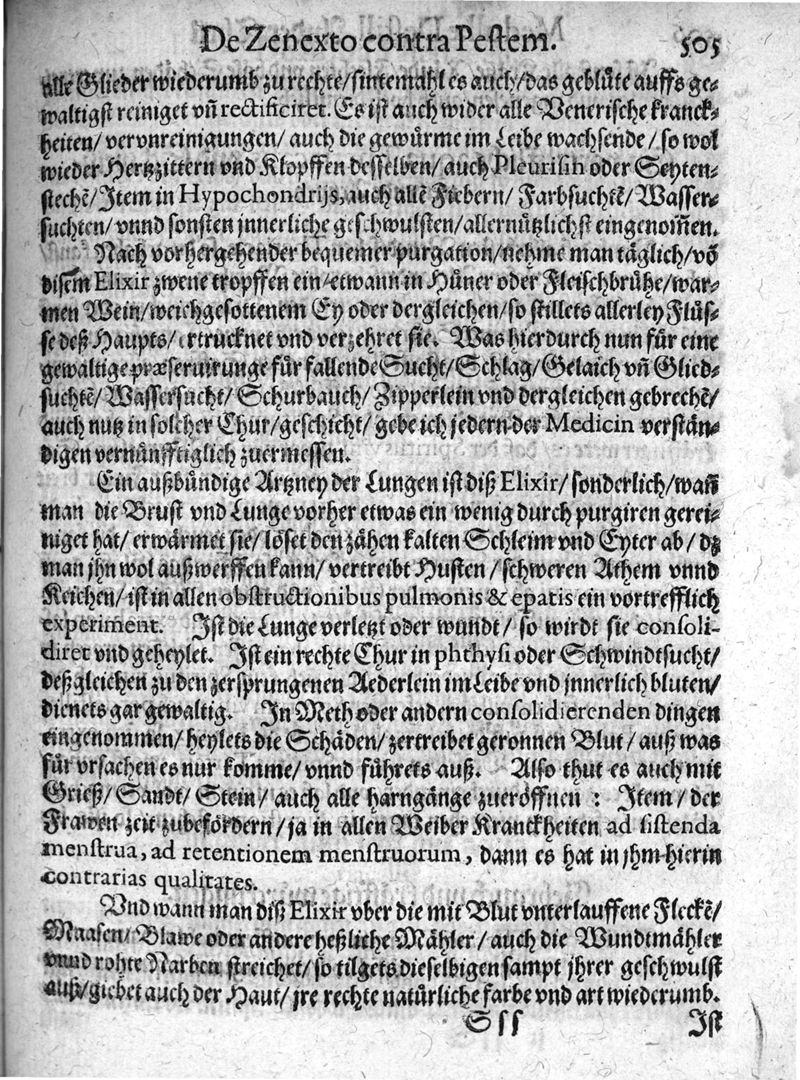 De Zenexto contra Pestem. 505
alle Glieder wiederumb zu rechte/sintemahl es auch/das geblüte auffs ge-
waltigst reiniget vn̄ rectificiret. Es ist auch wider alle Venerische kranck-
heiten/ vervnreinigungen/ auch die gewürme im Leibe wachsende/ so wol
wieder Hertzzittern vnd Klopffen desselben/ auch Pleurisin oder Seyten-
stechē/ Item in Hypochondrijs, auch allē Fiebern/ Farbsuchtē/ Wasser-
suchten/ vnnd sonsten jnnerliche geschwulsten/allernützlichst eingenom̄en.
Nach vorhergehender bequemer purgation/nehme man täglich/ vō
disem Elixir zwene tropffen ein/etwann in Hüner oder Fleischbrühe/war-
men Wein/weichgesottenem Ey oder dergleichen/so stillets allerley Flüs-
se deß Haupts/ ertrucknet vnd verzehret sie. Was hierdurch nun für eine
gewaltige præservirunge für fallende Sucht/Schlag/Gelaich vn̄ Glied-
suchtē/ Wassersucht/ Schurbauch/ Zipperlein vnd dergleichen gebrechē/
auch nutz in solcher Chur/geschicht/ gebe ich jedern der Medicin verstän-
digen vernünfftiglich zuermessen.
Ein außbündige Artzney der Lungen ist diß Elixir/ sonderlich/wan̄
man die Brust vnd Lunge vorher etwas ein wenig durch purgiren gerei-
niget hat/ erwärmet sie/ löset den zähen kalten Schleim vnd Eyter ab/ dz
man jhn wol außwerffen kann/ vertreibt Husten/ schweren Athem vnnd
Keichen/ ist in allen obstructionibus pulmonis & epatis ein vortrefflich
experiment. Ist die Lunge verletzt oder wundt/ so wirdt sie consoli-
diret vnd geheylet. Ist ein rechte Chur in phthysi oder Schwindtsucht/
deßgleichen zu den zersprungenen Aederlein im Leibe vnd jnnerlich bluten/
dienets gar gewaltig. In Meth oder andern consolidierenden dingen
eingenommen/ heylets die Schäden/ zertreibet geronnen Blut/ auß was
für vrsachen es nur komme/ vnnd führets auß. Also thut es auch mit
Grieß/ Sandt/ Stein/ auch alle harngänge zueröffnen : Item/ der
Frawen zeit zubefördern/ ja in allen Weiber Kranckheiten ad sistenda
menstrua, ad retentionem menstruorum, dann es hat in jhm hierin
contrarias qualitates.
Vnd wann man diß Elixir vber die mit Blut vnterlauffene Fleckē/
Maasen/ Blawe oder andere heßliche Mähler/ auch die Wundtmähler
vnnd rohte Narben streichet/ so tilgets dieselbigen sampt jhrer geschwulst
auß/ giebet auch der Haut/ jre rechte natürliche farbe vnd art wiederumb.
Sss Ist